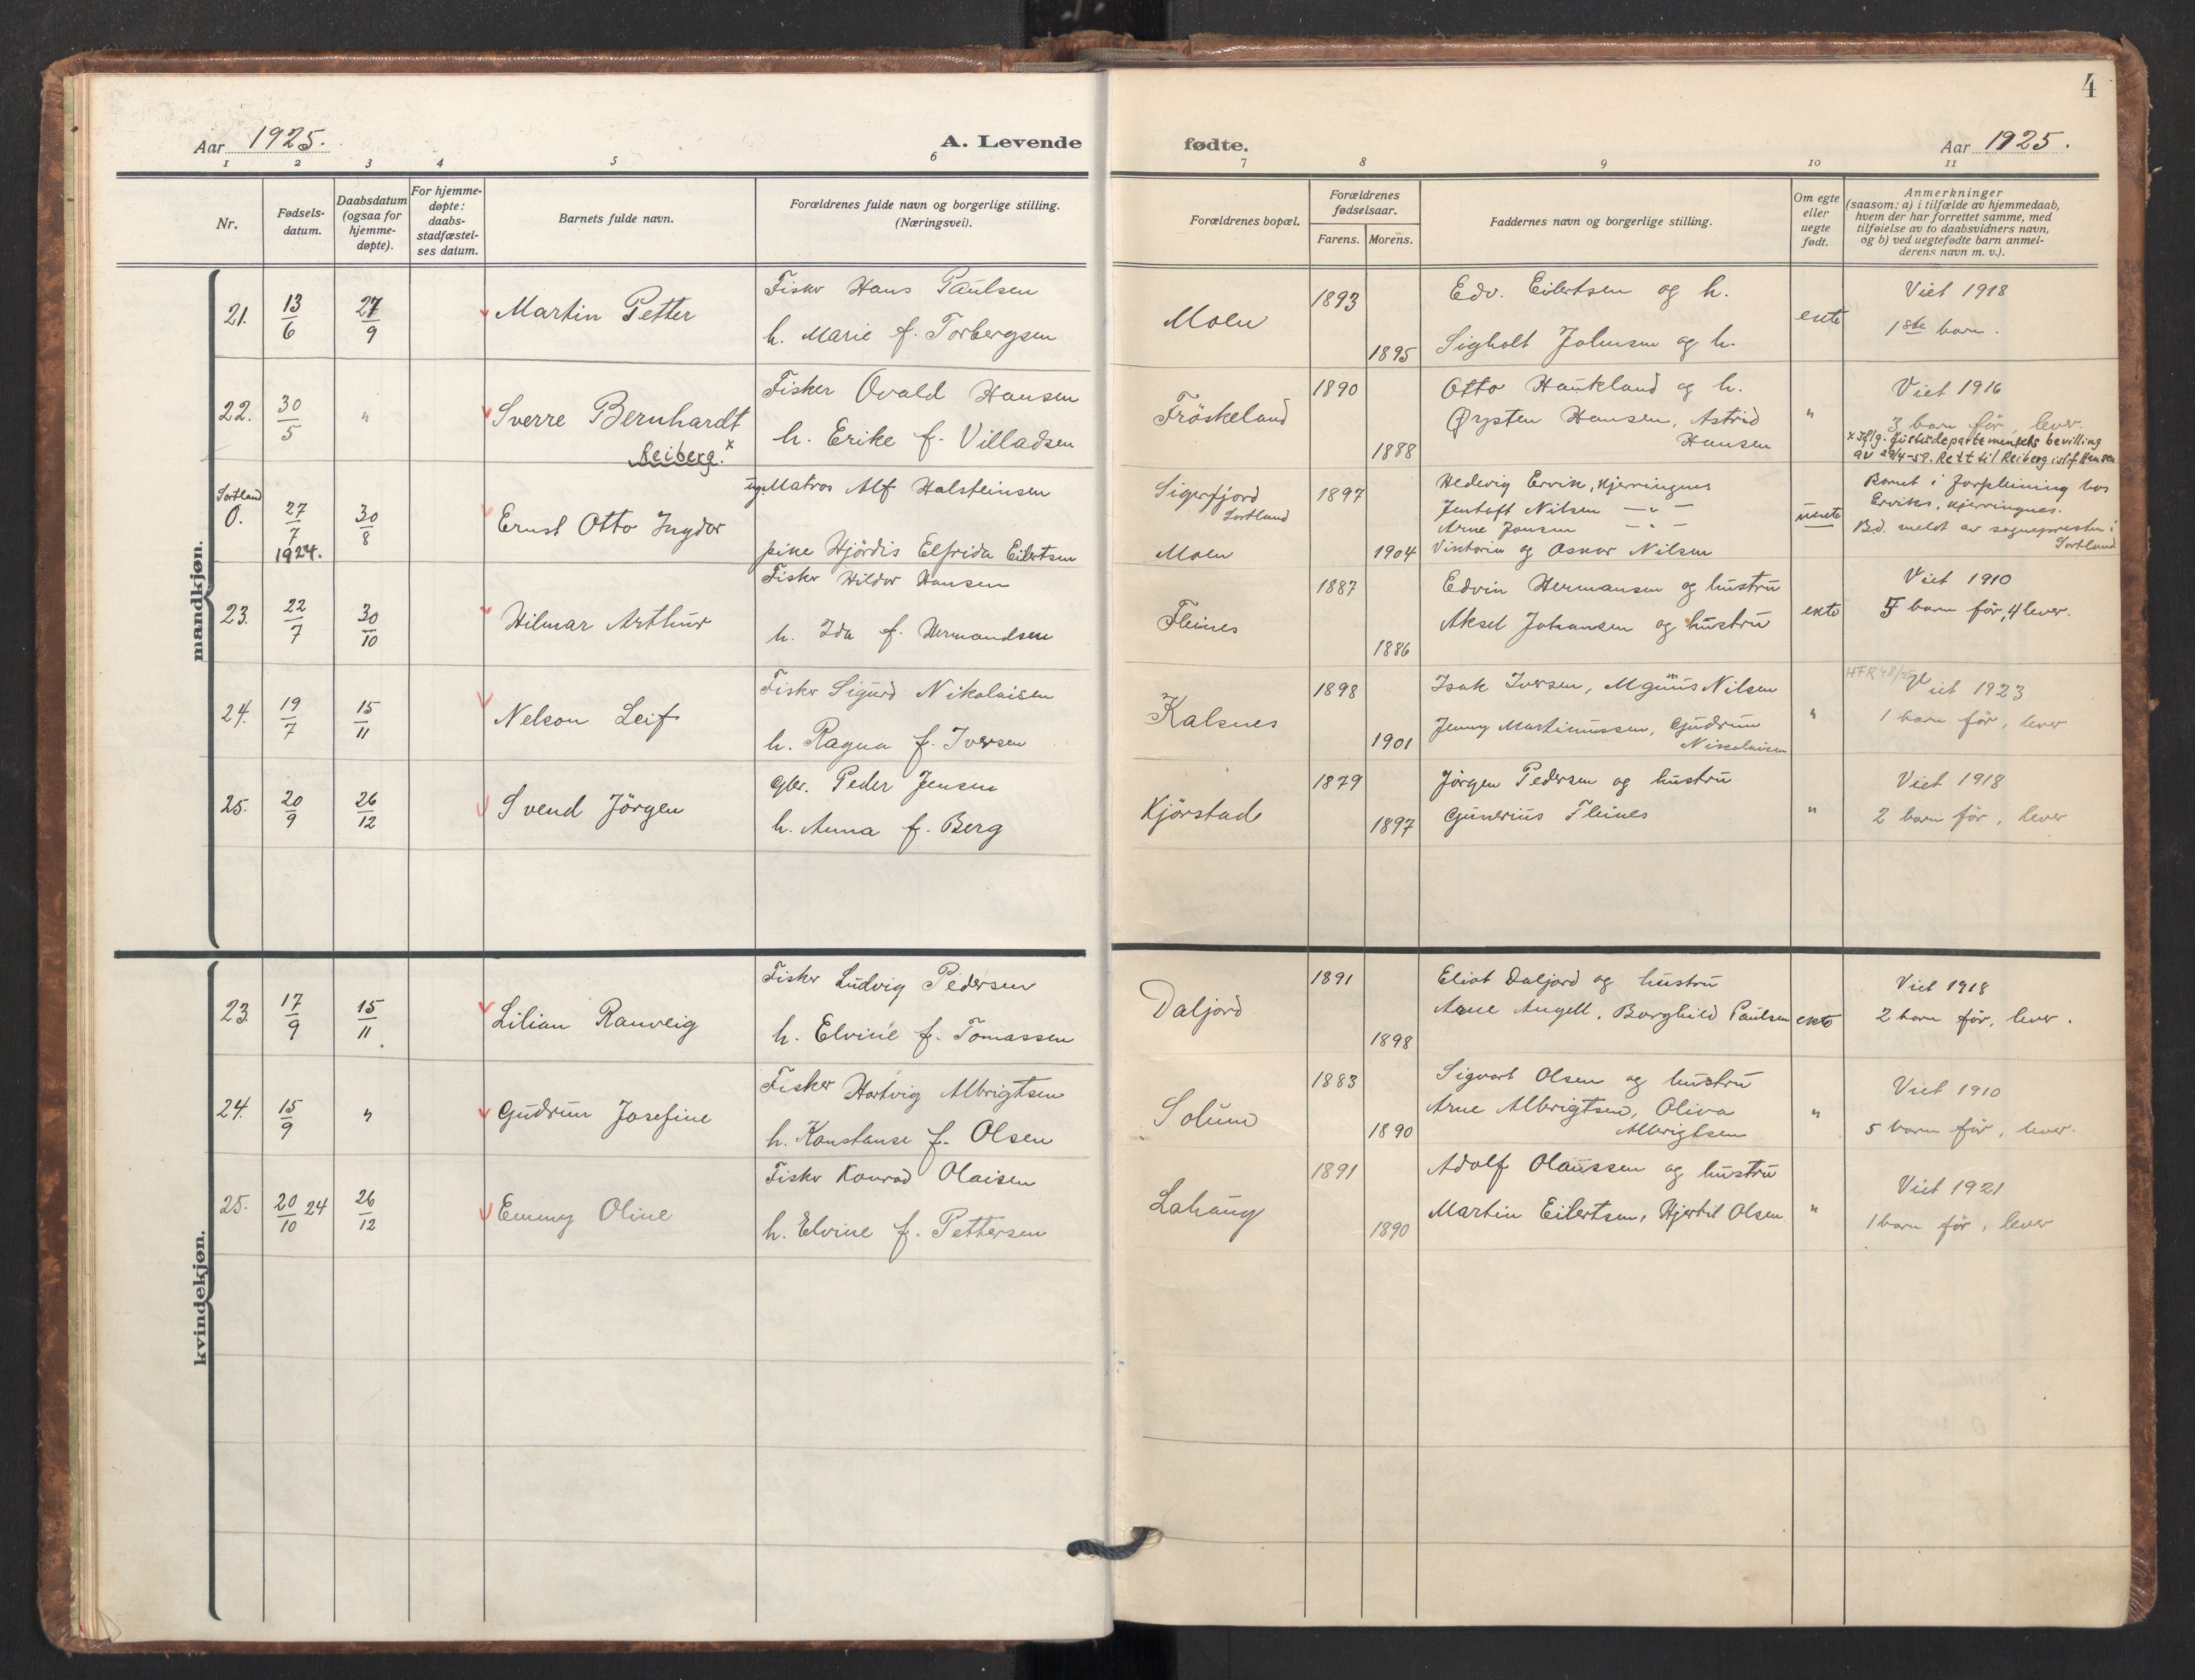 4
Aar 1925.
A. Levende
fødte.
Aar 1925.
1 2 3 4 5 6 7 8 9 10 11
Nr.
Fødsels-
datum.
Daabsdatum
(ogsaa for
hjemme-
døpte).
For hjemme-
døpte:
daabs-
stadfæstel-
ses datum.
Barnets fulde navn.
Forældrenes fulde navn og borgerlige stilling.
(Næringsvei).
Forældrenes bopæl.
Forældrenes
fødselsaar.
Farens. Morens.
Faddernes navn og borgerlige stilling.
Om egte
eller
uegte
født.
Anmerkninger
(saasom: a) i tilfælde av hjemmedaab,
hvem der har forrettet samme, med
tilføielse av to daabsvidners navn,
og b) ved uegtefødte barn anmel-
derens navn m. v.).
mandkjøn.
21. 13/6 27/9 Martin Petter
Fisker Hans Paulsen
h. Marie f. Torbergsen
Moen 1893 1895
Edv. Eilertsen og h.
Sigholt Johnsen og h.
ekte
Viet 1918
1ste barn.
22. 30/5 " Sverre Bernhardt
Reiberg. x
Fisker Ovald Hansen
h. Erike f. Villadsen
Frøskeland 1890 1888
Otto Haukland og h.
Øysten Hansen, Astrid
Hansen
"
Viet 1916
3 barn før, lever.
x Iflg. Justisdepartementets bevilling
av 29/4-59. Rett til Reiberg istf Hansen
Sortland
0. 27/7 1924. 30/8 Ernst Otto Ingvor
ug. Matros Alf Halsteinsen
pike Hjördis Elfrida Eilertsen
Sigerfjord
Sortland
Moen 1897 1904
Hedevig Ervik, Kjerringnes
Jentoft Nilsen — " —
Arne Jansen — " —
Viktoria og Oskar Nilsen
uekte
Barnet i forpleining hos
Erviks, Kjerringnes.
Bd. meldt av sognepresten i
Sortland
23. 22/7 30/10 Hilmar Arthur
Fisker Hildor Hansen
h. Ida f. Hermandsen
Fleines 1887 1886
Edvin Hermansen og hustru
Aksel Johansen og hustru
ekte
Viet 1910
5 barn før, 4 lever.
24. 19/7 15/11 Nelson Leif
Fisker Sigurd Nikolaisen
h. Ragna f. Iversen
Kalsnes 1898 1901
Isak Iversen, Magnus Nilsen
Jenny Martinussen, Gudrun
Nikolaisen
"
Viet 1923
1 barn før, lever
25. 20/9 26/12 Svend Jörgen
Gbr. Peder Jensen
h. Anna f. Berg
Kjörstad 1879 1897
Jörgen Pedersen og hustru
Gunerius Fleines
"
Viet 1918
2 barn før, lever
kvindekjøn.
23. 17/9 15/11. Lilian Ranveig
Fisker Ludvig Pedersen
h. Elvine f. Tomassen
Daljord 1891 1898
Eliot Daljord og hustru
Arne Angell, Borghild Paulsen
ekte
Viet 1918
2 barn før, lever.
24. 15/9 " Gudrun Josefine
Fisker Hartvig Albrigtsen
h. Konstanse f. Olsen
Solum 1883 1890
Sigvart Olsen og hustru
Arne Albrigtsen, Oliva
Albrigtsen
"
Viet 1910
5 barn før, lever.
25. 20/10 24 26/12 Emmy Oline
Fisker Konrad Olaisen
h. Elvine f. Pettersen
Lahaug 1891 1890
Adolf Olaussen og hustru
Martin Eilertsen, Hjertil Olsen
"
Viet 1921
1 barn før, lever